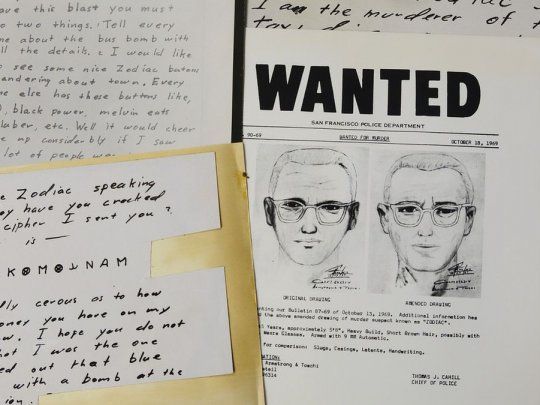 ave this blast you must
o two things. 1 Tell every
me about the bus bomb with
ll the details. 2 I would like
o see some nice Zodiac butons
andering about town. Every
e else has these buttons like,
black power, melvin eats
luber, etc. Well it would cheer
up considerbly if I saw
lot of people
Zodiac speaking
have you cracked
cipher I sent you?
is —
NAM
cerous as to how
oney you have on my
w. I hope you do not
I was the one
ed out that blue
with a bomb at the
ion.
I am the murderer of
WANTED
SAN FRANCISCO POLICE DEPARTMENT
90-69 WANTED FOR MURDER OCTOBER 18, 1969
ORIGINAL DRAWING AMENDED DRAWING
our Bulletin 87-69 of October 13, 1969. Additional information has
the above amended drawing of murder suspect known as "ZODIAC".
Years, approximately 5'8", Heavy Build, Short Brown Hair, possibly with
Wears Glasses. Armed with 9 MM Automatic.
for comparison: Slugs, Casings, Latents, Handwriting.
Armstrong & Toschi
THOMAS J. CAHILL
CHIEF OF POLICE